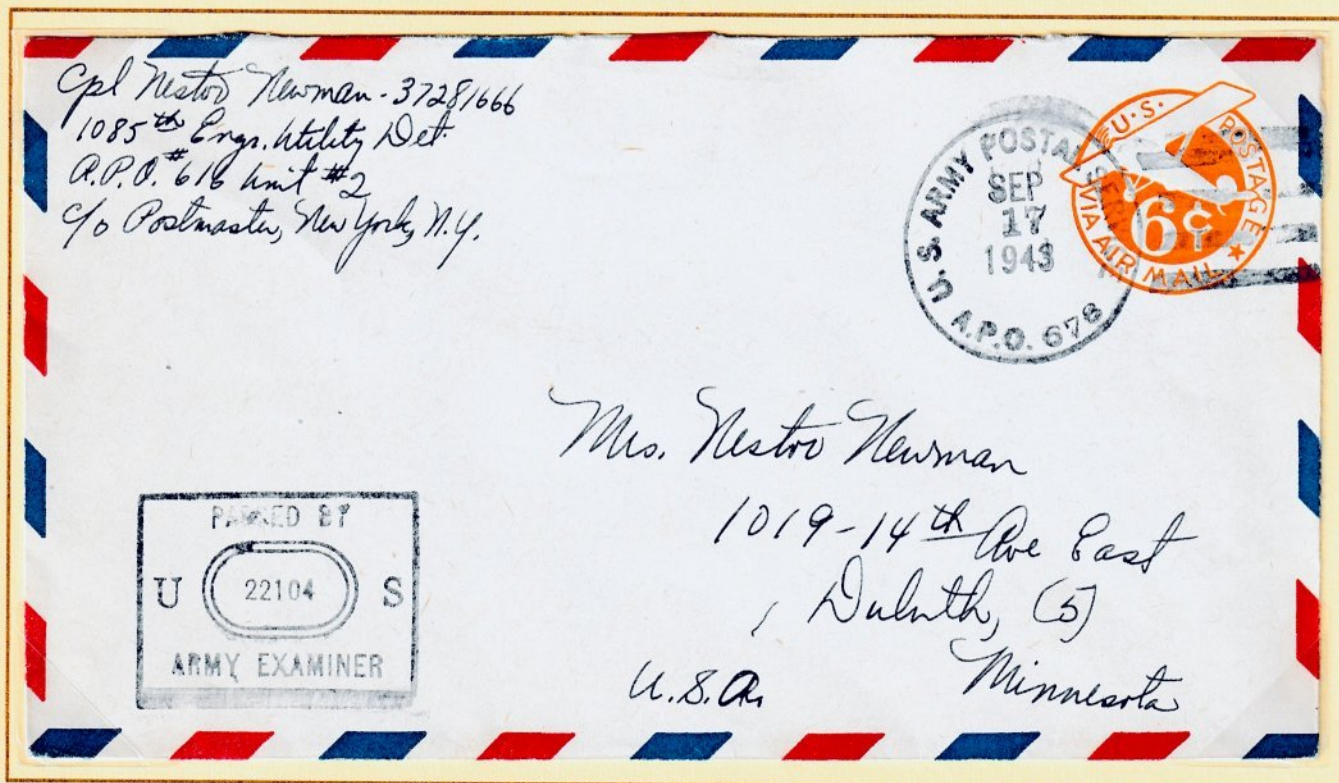 Cpl Nestor Newman - 37281666
1085th Engr. Utility Det
A.P.O. # 616 Unit #2
c/o Postmaster, New York, N.Y.
U.S. ARMY POSTAL SERVICE
SEP
17
1943
A.P.O. 678
U.S. POSTAGE
6¢
VIA AIR MAIL
Mrs. Nestor Newman
1019-14th Ave East
Duluth, (5)
Minnesota
U.S.A.
PASSED BY
U 22104 S
ARMY EXAMINER